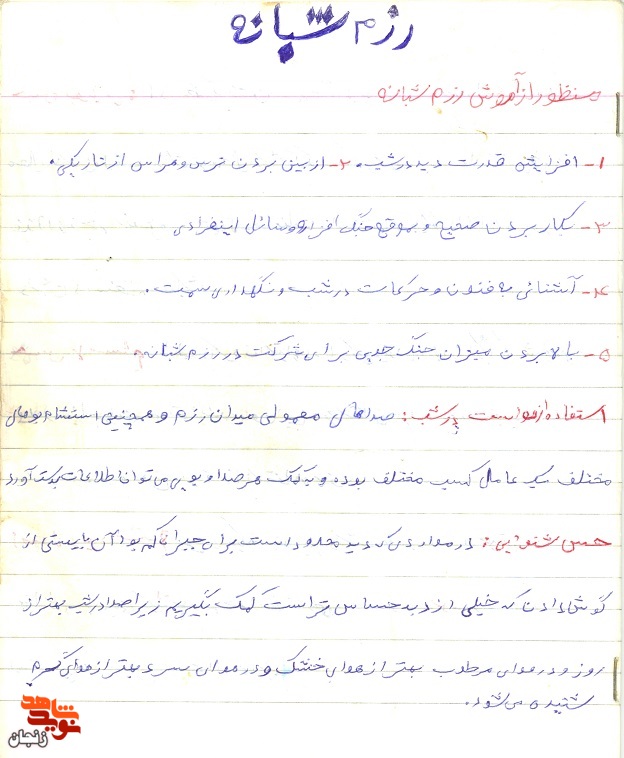 رزم شبانه
منظور از آموزش رزم شبانه
۱- افزایش قدرت دید در شب. ۲- از بین بردن ترس و هراس از تاریکی.
۳- بکار بردن صحیح و بموقع جنگ افزار و وسائل اینفرادی
۴- آشنائی به فنون و حرکات در شب و نگهداری سمت.
۵- بالا بردن میزان جنگ جویی برای شرکت در رزم شبانه.
استفاده از حواست در شب: صداهای معمولی میدان رزم و همچنین استشمام بوهای
مختلف یک عامل کسب مختلف بوده و به کمک هر صدا و بویی می توان اطلاعات بدست آورد
حس شنوایی: در مواردی که دید محدود است برای جبران کم بود آن بایستی از
گوش دادن که خیلی از دید حساس تر است کمک بگیریم زیرا صدا در شب بهتر از
روز و در هوای مرطوب بهتر از هوای خشک و در هوای سرد بهتر از هوای گرم
شنیده می شود.
نوید شاهد
زنجان